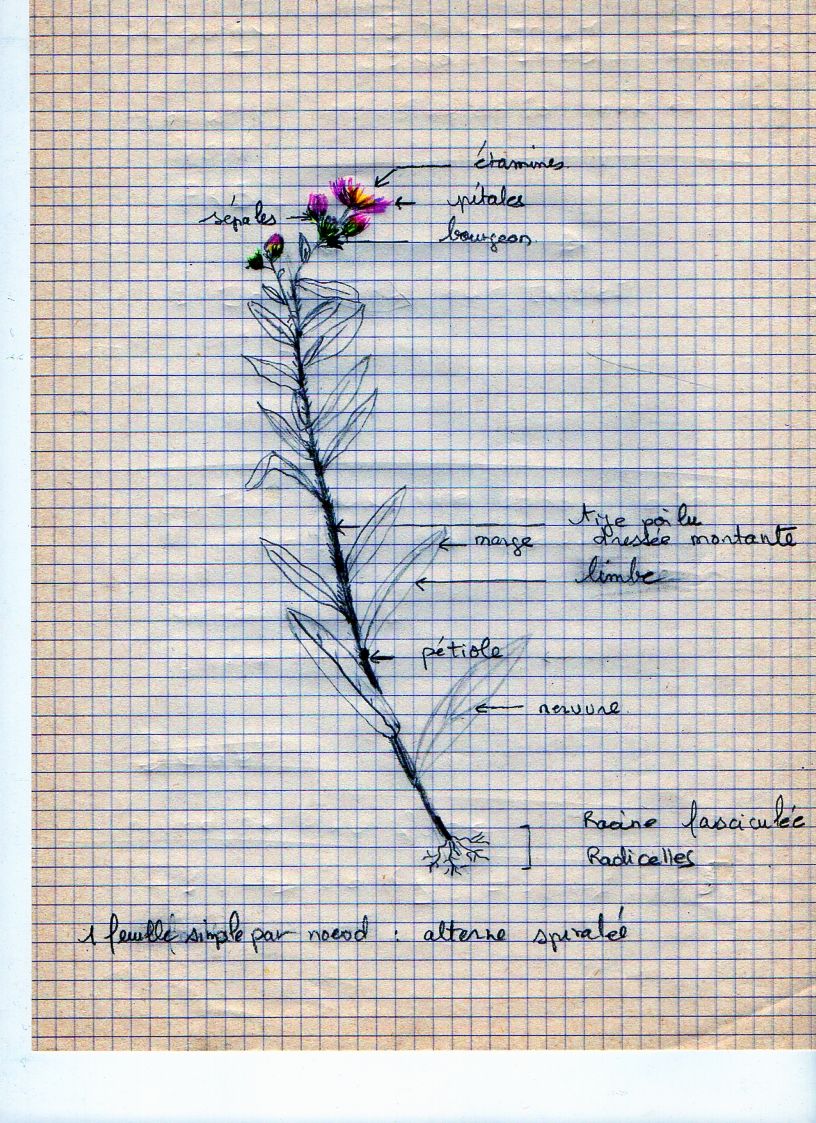 étamines
pétales
sépales
bourgeon
tige poilu
dressée montante
marge
limbe
pétiole
nervure
Racine fasciculée
Radicelles
1 feuille simple par noeud : alterne spiralé